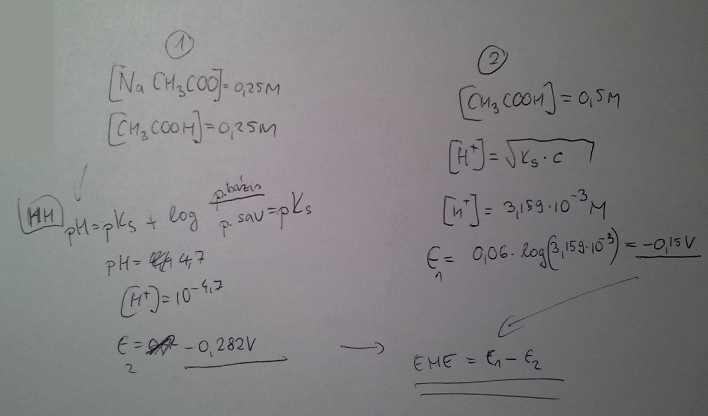 ①
[NaCH₃COO]=0,25M
[CH₃COOH]=0,25M
HH pH=pKs + log p bázis / p sav = pKs
pH= 4,7
[H⁺]=10⁻⁴,⁷
ε₂ = -0,282V
②
[CH₃COOH]=0,5M
[H⁺]=√Ks·c
[H⁺]= 3,159·10⁻³M
ε₁ = 0,06·log(3,159·10⁻³)= -0,15V
EME = ε₁-ε₂